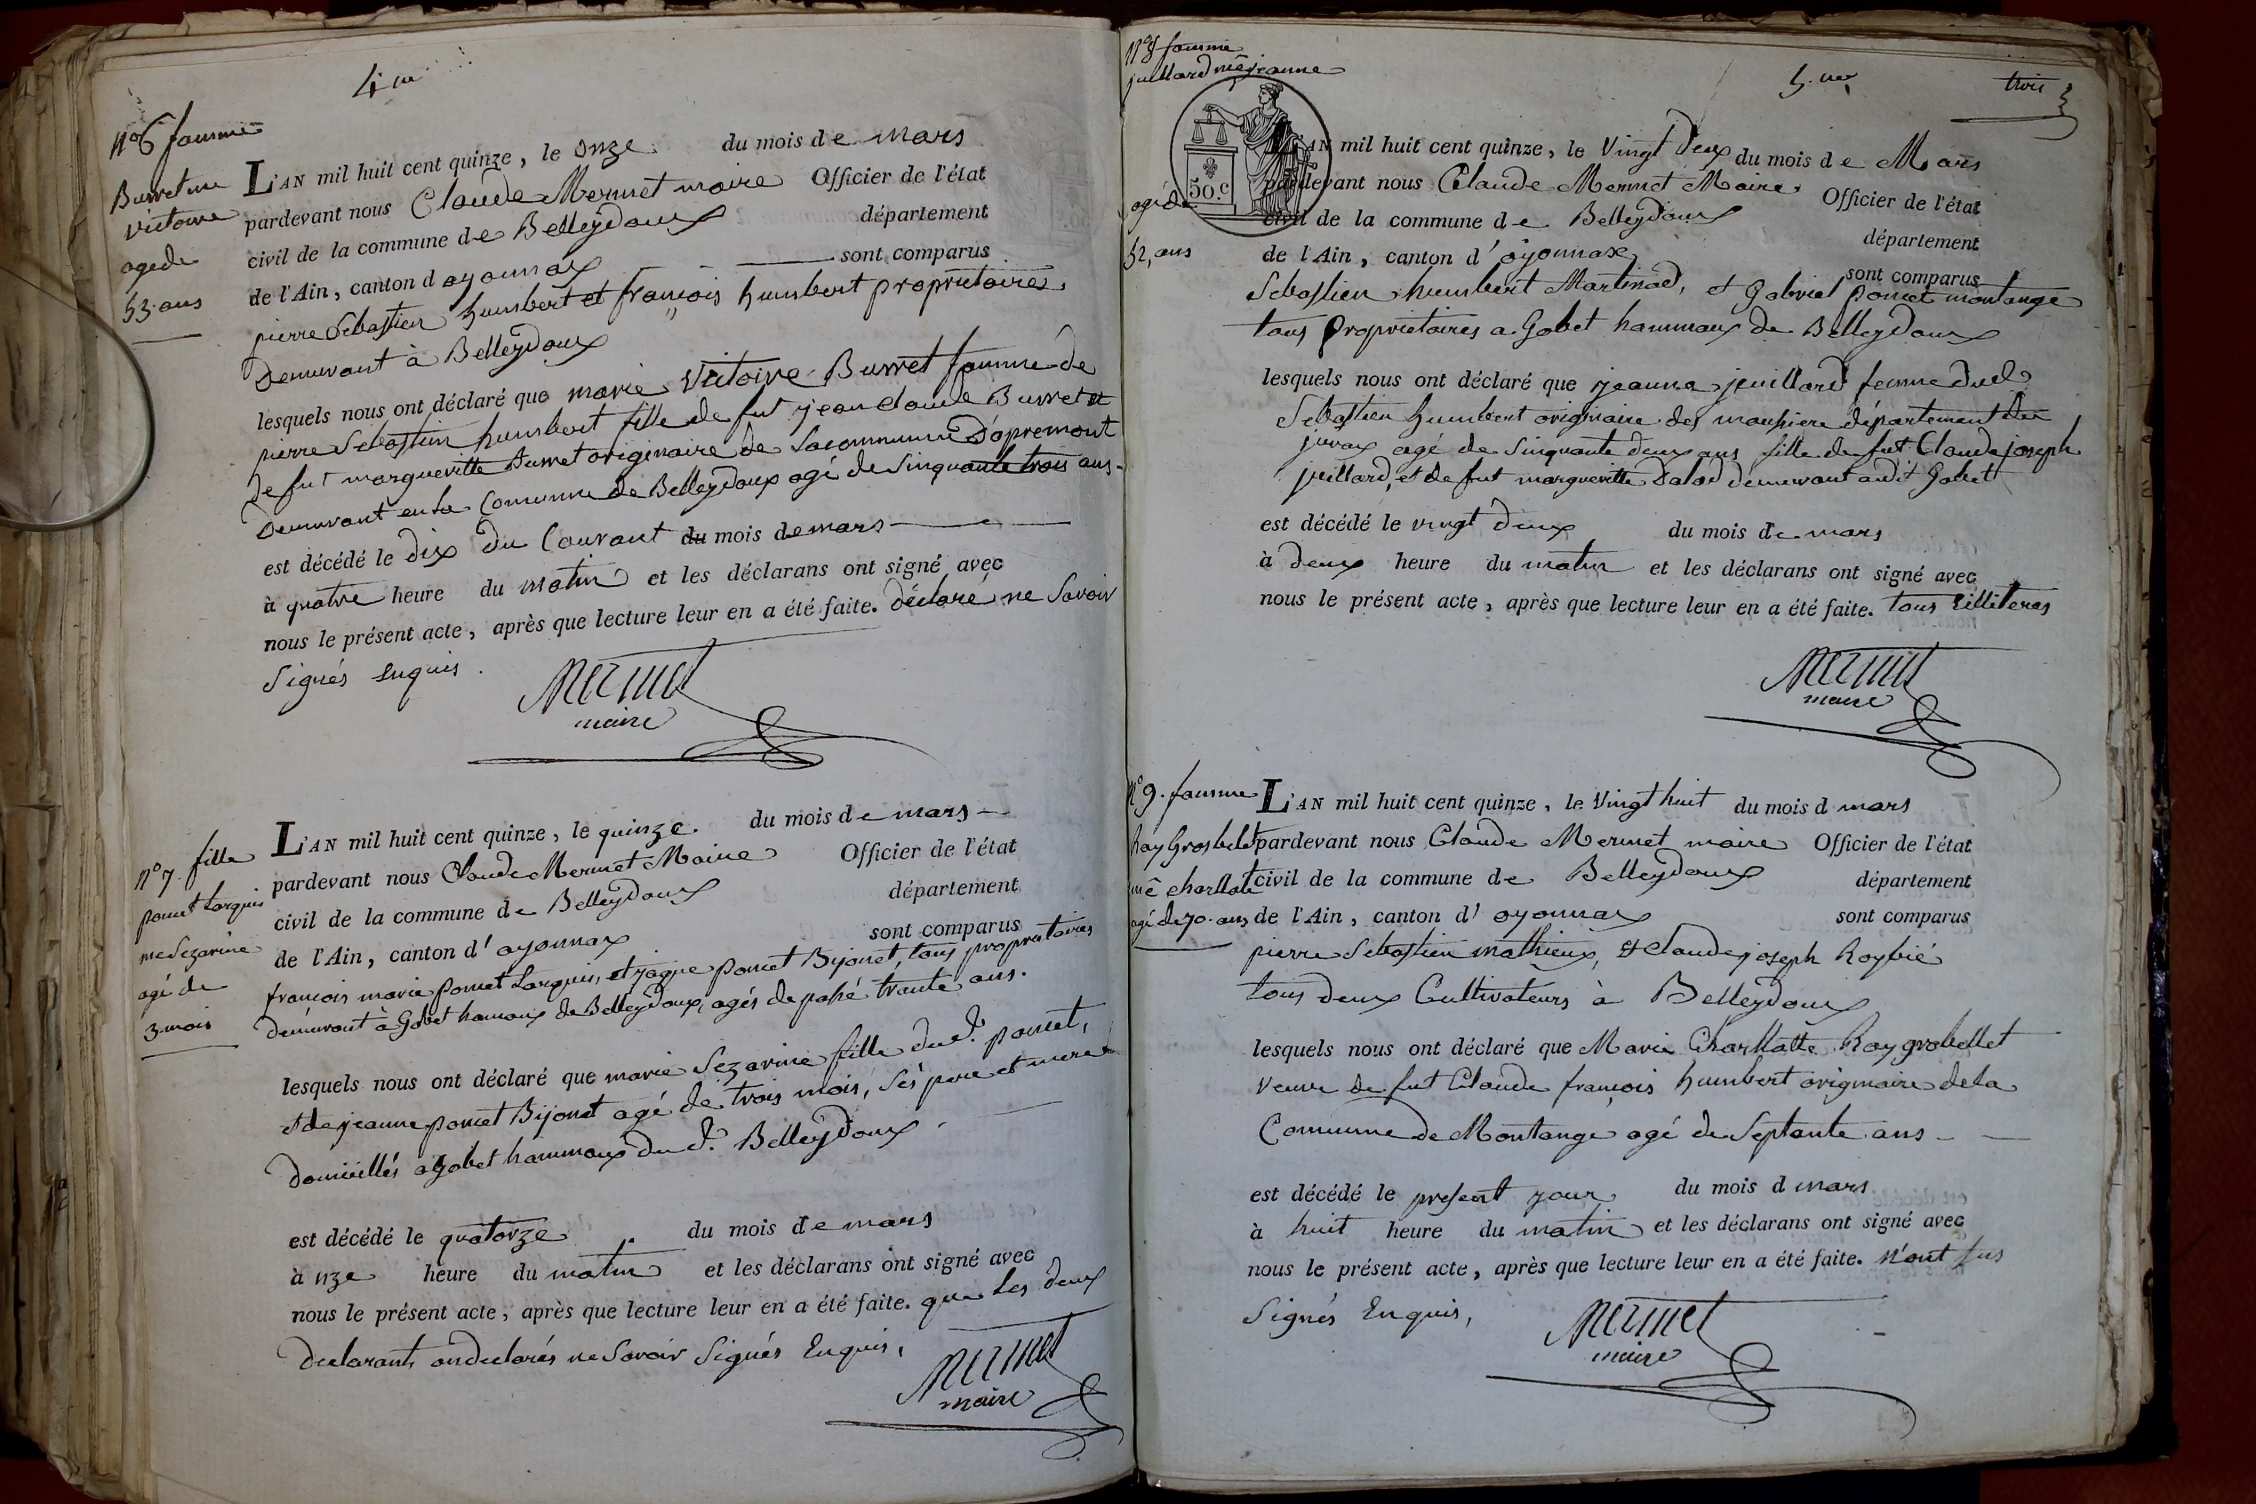 4 me
N° 6 famme
Burret me
victoire
agé de
53 ans
L'AN mil huit cent quinze, le onze du mois de mars
pardevant nous Claude Mermet maire Officier de l'état
civil de la commune de Belleydoux département
de l'Ain, canton d oyonnax sont comparus
pierre Sebastien humbert et françois humbert proprietaires
Demeurant à Belleydoux
lesquels nous ont déclaré que marie Victoire Burret famme de
pierre Sebastien humbert fille de fut jean claude Burret et
de fut margueritte Burret originaire de La commune D'apremont
Demeurant en la Commune de Belleydoux agé de Sinquante trois ans
est décédé le dix du Courant du mois de mars
à quatre heure du matin et les déclarans ont signé avec
nous le présent acte, après que lecture leur en a été faite. déclaré ne Savoir
Signés enquis.
Mermet
maire
N° 7. fille
poncet Larquis
me Sezarine
agé de
3 mois
L'AN mil huit cent quinze, le quinze. du mois de mars
pardevant nous Claude Mermet Maire Officier de l'état
civil de la commune de Belleydoux département
de l'Ain, canton d' oyonnax sont comparus
francois marie poncet Larquis, et jaque poncet Bijonet, tous proprietaires
demeurant à Gobet hamaux de Belleydoux, agés de passé trante ans.
lesquels nous ont déclaré que marie Sezarine fille du d. poncet,
et de jeanne poncet Bijonet agé de trois mois, Ses pere et mere
domicillés a Gobet hammaux du d. Belleydoux
est décédé le quatorze du mois de mars
à nze heure du matin et les déclarans ont signé avec
nous le présent acte, après que lecture leur en a été faite. que Les deux
declarants on declarés ne Savoir Signés Enquis,
Mermet
maire
N° 8 famme
juillard me jeanne
agé de
52, ans
5. me
trois
50. C
L'AN mil huit cent quinze, le Vingt Deux du mois de Mars
pardevant nous Claude Mermet Maire. Officier de l'état
civil de la commune de Belleydoux département
de l'Ain, canton d' oyonnax sont comparus
Sebastien humbert Martinod, et Gabriel poncet montange
tous proprietaires a Gobet hammaux de Belleydoux
lesquels nous ont déclaré que jeanne juillard femme dud
Sebastien humbert originaire des département du
jurax agé de Sinquante deux ans fille de fut Claude joseph
juillard, et de fut margueritte Dalod demeurant audit Gobet
est décédé le vingt deux du mois de mars
à deux heure du matin et les déclarans ont signé avec
nous le présent acte, après que lecture leur en a été faite. tous illiteres
Mermet
maire
N° 9. famme
Ray Grosbelet
me charllate
agé de 70. ans
L'AN mil huit cent quinze, le Vingt huit du mois d mars
pardevant nous Claude Mermet maire Officier de l'état
civil de la commune de Belleydoux département
de l'Ain, canton d' oyonnax sont comparus
pierre Sebastien mathieux, et Claude joseph Roybié
tous deux Cultivateurs à Belleydoux
lesquels nous ont déclaré que Marie Charllatte Ray grobellet
veuve de fut Claude françois humbert originaire de la
Commune de Montange agé de Septante ans
est décédé le present jour du mois d mars
à huit heure du matin et les déclarans ont signé avec
nous le présent acte, après que lecture leur en a été faite. N'ont pus
Signés Enquis,
Mermet
maire